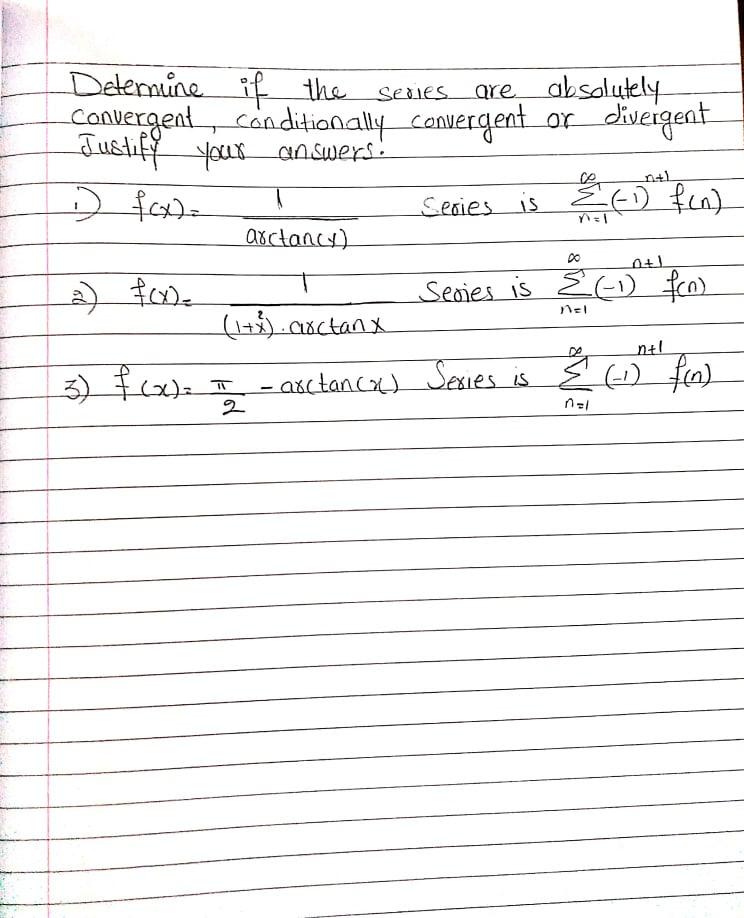 Determine if the series are absolutely
convergent, conditionally convergent or divergent
Justify your answers.
1) f(x) = 1/arctan(x) Series is ∞Σn=1 (-1)^n+1 f(n)
2) f(x) = 1/(1+x²).arctanx Series is ∞Σn=1 (-1)^n+1 f(n)
3) f(x) = π/2 - arctan(x) Series is ∞Σn=1 (-1)^n+1 f(n)